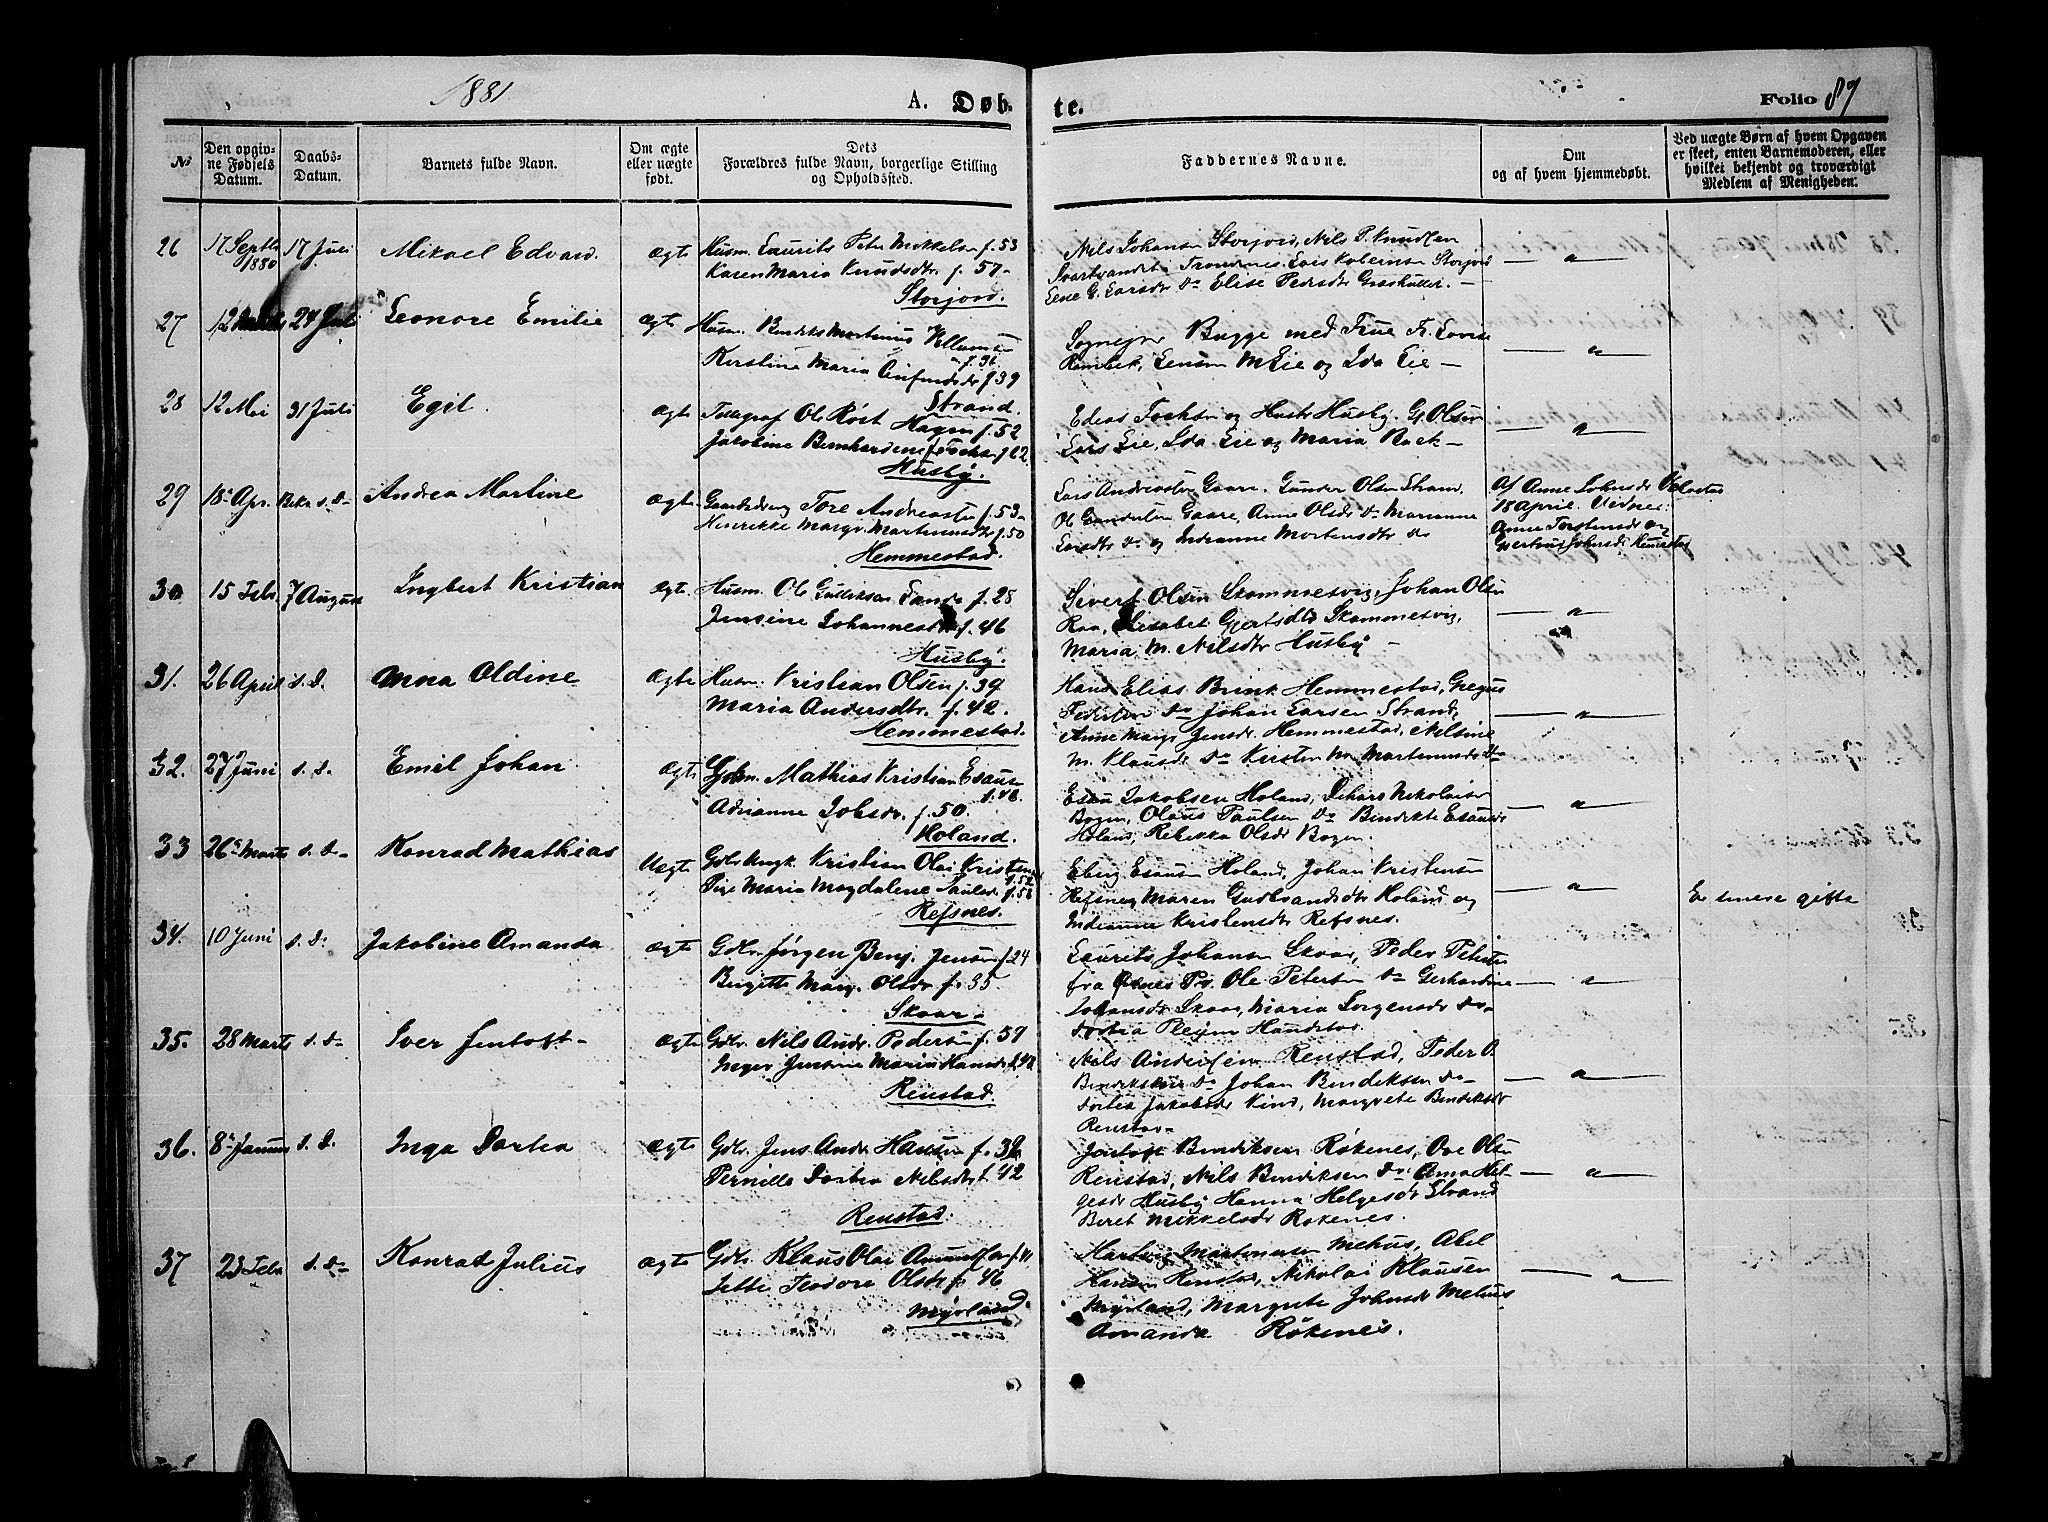 1881
A. Døb-
te.
Folio 87
No
Den opgiv-
ne Fødsels
Datum.
Daabs-
Datum.
Barnets fulde Navn.
Om ægte
eller uægte
født.
Dets
Forældres fulde Navn, borgerlige Stilling
og Opholdssted.
Faddernes Navne.
Om
og af hvem hjemmedøbt.
Ved uægte Børn af hvem Opgaven
er skeet, enten Barnemoderen, eller
hvilket bekjendt og troværdigt
Medlem af Menigheden.
26
17 Septbr
1880
17 Juli
Mikael Edvard.
ægte
Husm. Laurits Peter Mikkelsen f. 53
Karen Maria Knudsdtr. f. 57-
Storjord.
Nels Johansen Storjord, Nils P. Knudsen
Elise Pedersdtr
27
12 Marts
24 Juli
Leonore Emilie
ægte
Husm. Bendiks Martinus Villumsen
f. 36
Kirstine Maria f 39
Strand.
Sognepr Bugge med Frue Fr. Lovise
Rambek, Jensen M Eie og Ida Eie —
28
12 Mai
31 Juli
Egil.
ægte
Ole Røst Hagen f. 52
Jakobine Bernhardine f 62
Husby.
Edias Fochsen og Hustr Husby. G. Olsen
Lars Eie, Ida Eie og Maria Back —
29
18 Apr.
s. D.
Andrea Martine
ægte
Tore Andreassen f. 53-
Henrikke Margr. Martinusdtr f. 50
Hemmestad.
Lars Andreassen Gaare. Gunder Olsen Strand.
Ole Gundersen Gaare, Anne Olsdr Do Marianne
Larsdtr Do og Indianne Mortensdtr do
Af Anne Johnsdr
18 April. Vidner:
Anne Torstensdr og
Gjertrud Johnsdr Hemestad
30
15 Febr.
7 August
Ingbert Kristian
ægte.
Husm. Ole Gulliksen Sando f. 28
Jensine Johannesdtr f. 46
Husby.
Sivert Olsen Skammesvig, Johan Olsen
Raa, Elisabet Gjertsdtr Skammesvig,
Maria M. Nilsdtr Husby —
31.
26 April
s. D.
Anna Oldine
ægte
Husm. Kristian Olsen f. 39
Maria Andersdtr. f. 42.
Hemmestad.
Hans Elias Brink Hemmestad, Gregus
Pedersen Do Johan Larsen Strand,
Anne Margr Jensdr. Hemmestad, Nilsine
M. Klausdr Do Kirsten M. Martinusdr Do
32.
27 Juni
s. D.
Emil Johan
ægte
Mathias Kristian Esausen
f. 48.
Adrianne Jobsdr. f. 50.
Holand.
Esau Jakobsen Holand, Nikolaisen
Bogen, Olaus Paulsen Do Bendikte Esausdr
Holand, Rebekka Olsdr Bogen.
33
26 Marts
s. D-
Konrad Mathias
Uægte
Gdbr Ungk. Kristian Olai Kristensen
f. 52
Pige Maria Magdalene Paulsd. f. 56
Refsnes.
Eberg Esausen Holand, Johan Kristensen
Refsnes, Maren Gudbrandsdtr Holand og
Indianna Kristensdtr Refsnes.
Er senere gifte
34.
10 Juni
s. D.
Jakobine Amanda
ægte
Gdbr. Jørgen Benj. Jensen f. 24
Birgitte Marg. Olsdr f. 35.
Skaar-
Laurits Johansen Skaar, Peder Petersen
fra Øxnes Pr. Ole Petersen Do Gerhardine
Johansdr Skaar, Maria Jørgensdr Do-
Dortea Plejm Hundstad
35.
28 Marts
s. D-
Iver Jentoft-
ægte
Gdbr. Nils Andr. Pedersen f. 59
Inger Jensine Maria Hansdr f. 48
Renstad.
Nels Andersen Renstad, Peder O.
Bendiksen Do Johan Bendiksen Do-
Dortea Jakobsdr Kind, Margrete Bendiksdr
Renstad-
36.
8 Januar
s. D.
Inga Dortea
ægte
Gdbr. Jens Andr. Hansen f. 39
Pernille Dortea Nilsdtr f. 42
Renstad.
Jentoft Bendiksen Røkenes, Ove Olsen
Renstad, Nils Bendiksen Do Anna Hel-
gesdr Husby Hanna Helgesdr Strand
Beret Mikkelsdr Røkenes.
37
23 Feb
s. D-
Konrad Julius
ægte
Gdbr. Klaus Olai Amundsen f. 41
Jette Teodore Olsdr f. 46
Myrland.
Hartvig Martinussen Melhus, Abel
Hansen Renstad, Nikolai Klausen
Myrland, Margrete Johnsdr Melhus
Amanda Røkenes.